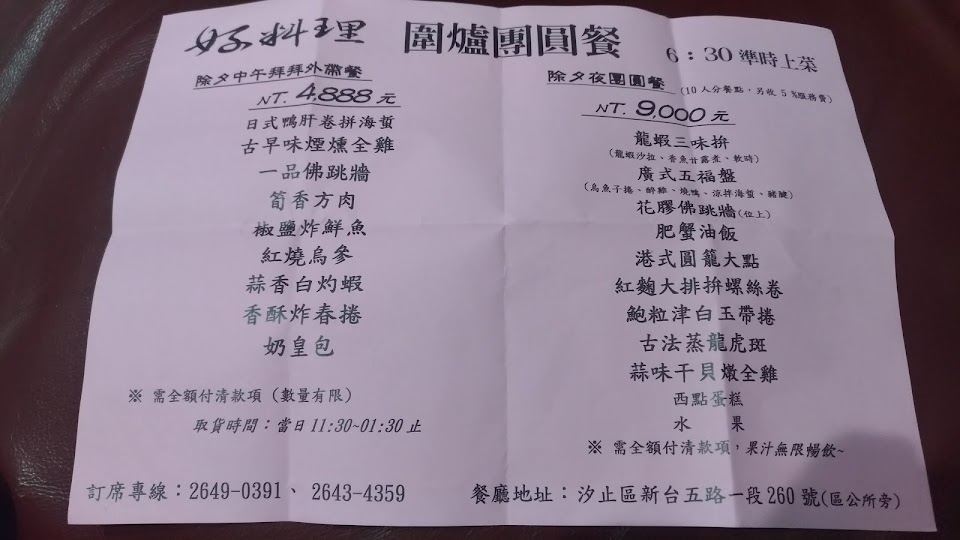 好料理 圍爐團圓餐 6：30準時上菜
除夕中午拜拜外帶餐
NT. 4,888元
日式鴨肝卷拼海蜇
古早味煙燻全雞
一品佛跳牆
筍香方肉
椒鹽炸鮮魚
紅燒烏參
蒜香白灼蝦
香酥炸春捲
奶皇包
※ 需全額付清款項（數量有限）
取貨時間：當日11:30~01:30止
除夕夜團圓餐（10人分餐點，另收5%服務費）
NT. 9,000元
龍蝦三味拚
（龍蝦沙拉、香魚甘露煮、軟時）
廣式五福盤
（烏魚子捲、醉雞、燒鴨、涼拌海蜇、豬腱）
花膠佛跳牆(位上)
肥蟹油飯
港式圓籠大點
紅麴大排拚螺絲卷
鮑粒津白玉帶捲
古法蒸龍虎斑
蒜味干貝燉全雞
西點蛋糕
水 果
※ 需全額付清款項，果汁無限暢飲~
訂席專線：2649-0391、2643-4359
餐廳地址：汐止區新台五路一段260號(區公所旁)